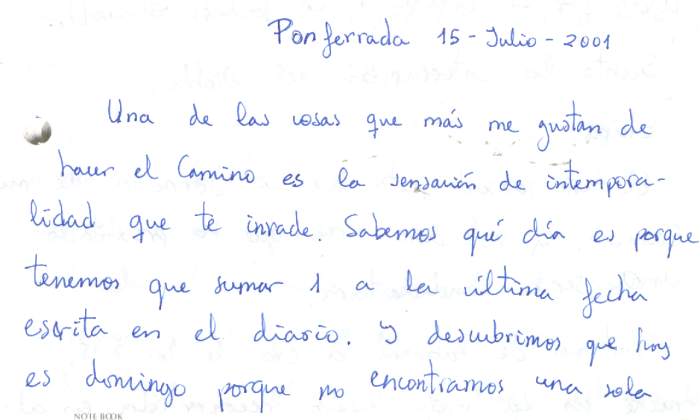 Ponferrada 15 - Julio - 2001
Una de las cosas que más me gustan de
hacer el Camino es la sensación de intempora-
lidad que te invade. Sabemos qué día es porque
tenemos que sumar 1 a la última fecha
escrita en el diario. Y descubrimos que hoy
es domingo porque no encontramos una sola
NOTE BOOK